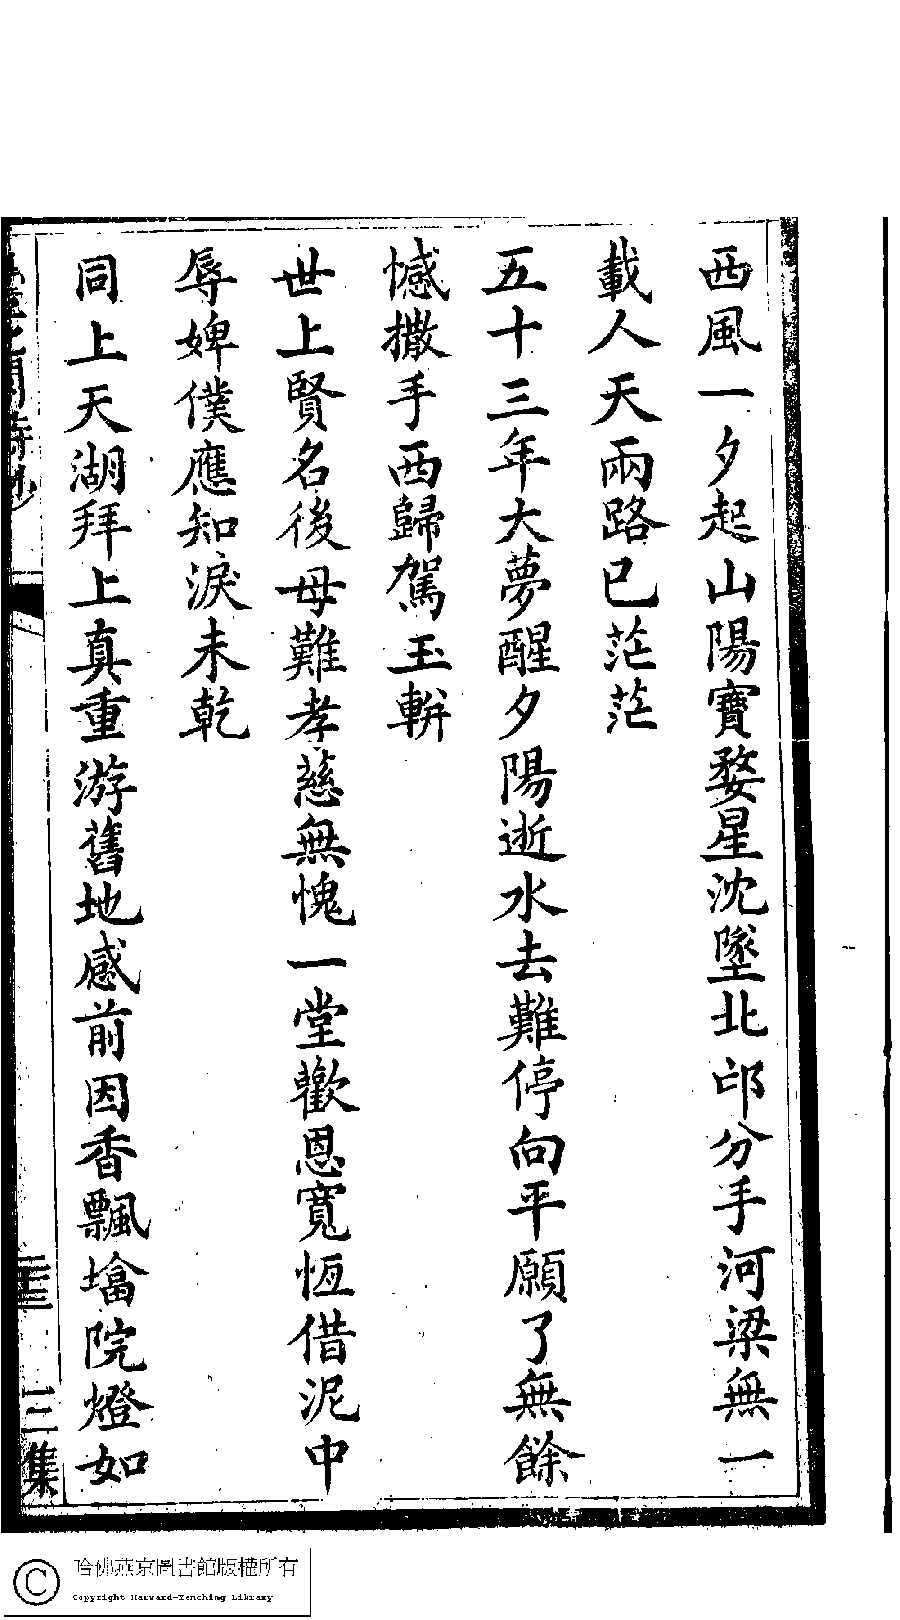 西風一夕起山陽寶婺星沈墜北邙分手河梁無一
載人天兩路已茫茫
五十三年大夢醒夕陽逝水去難停向平願了無餘
憾撒手西歸駕玉軿
世上賢名後母難孝慈無愧一堂歡恩寬恆借泥中
辱婢僕應知淚未乾
同上天湖拜上真重游舊地感前因香飄墖院燈如
三集
哈佛燕京圖書館版權所有
Copyright Harvard-Yenching Library